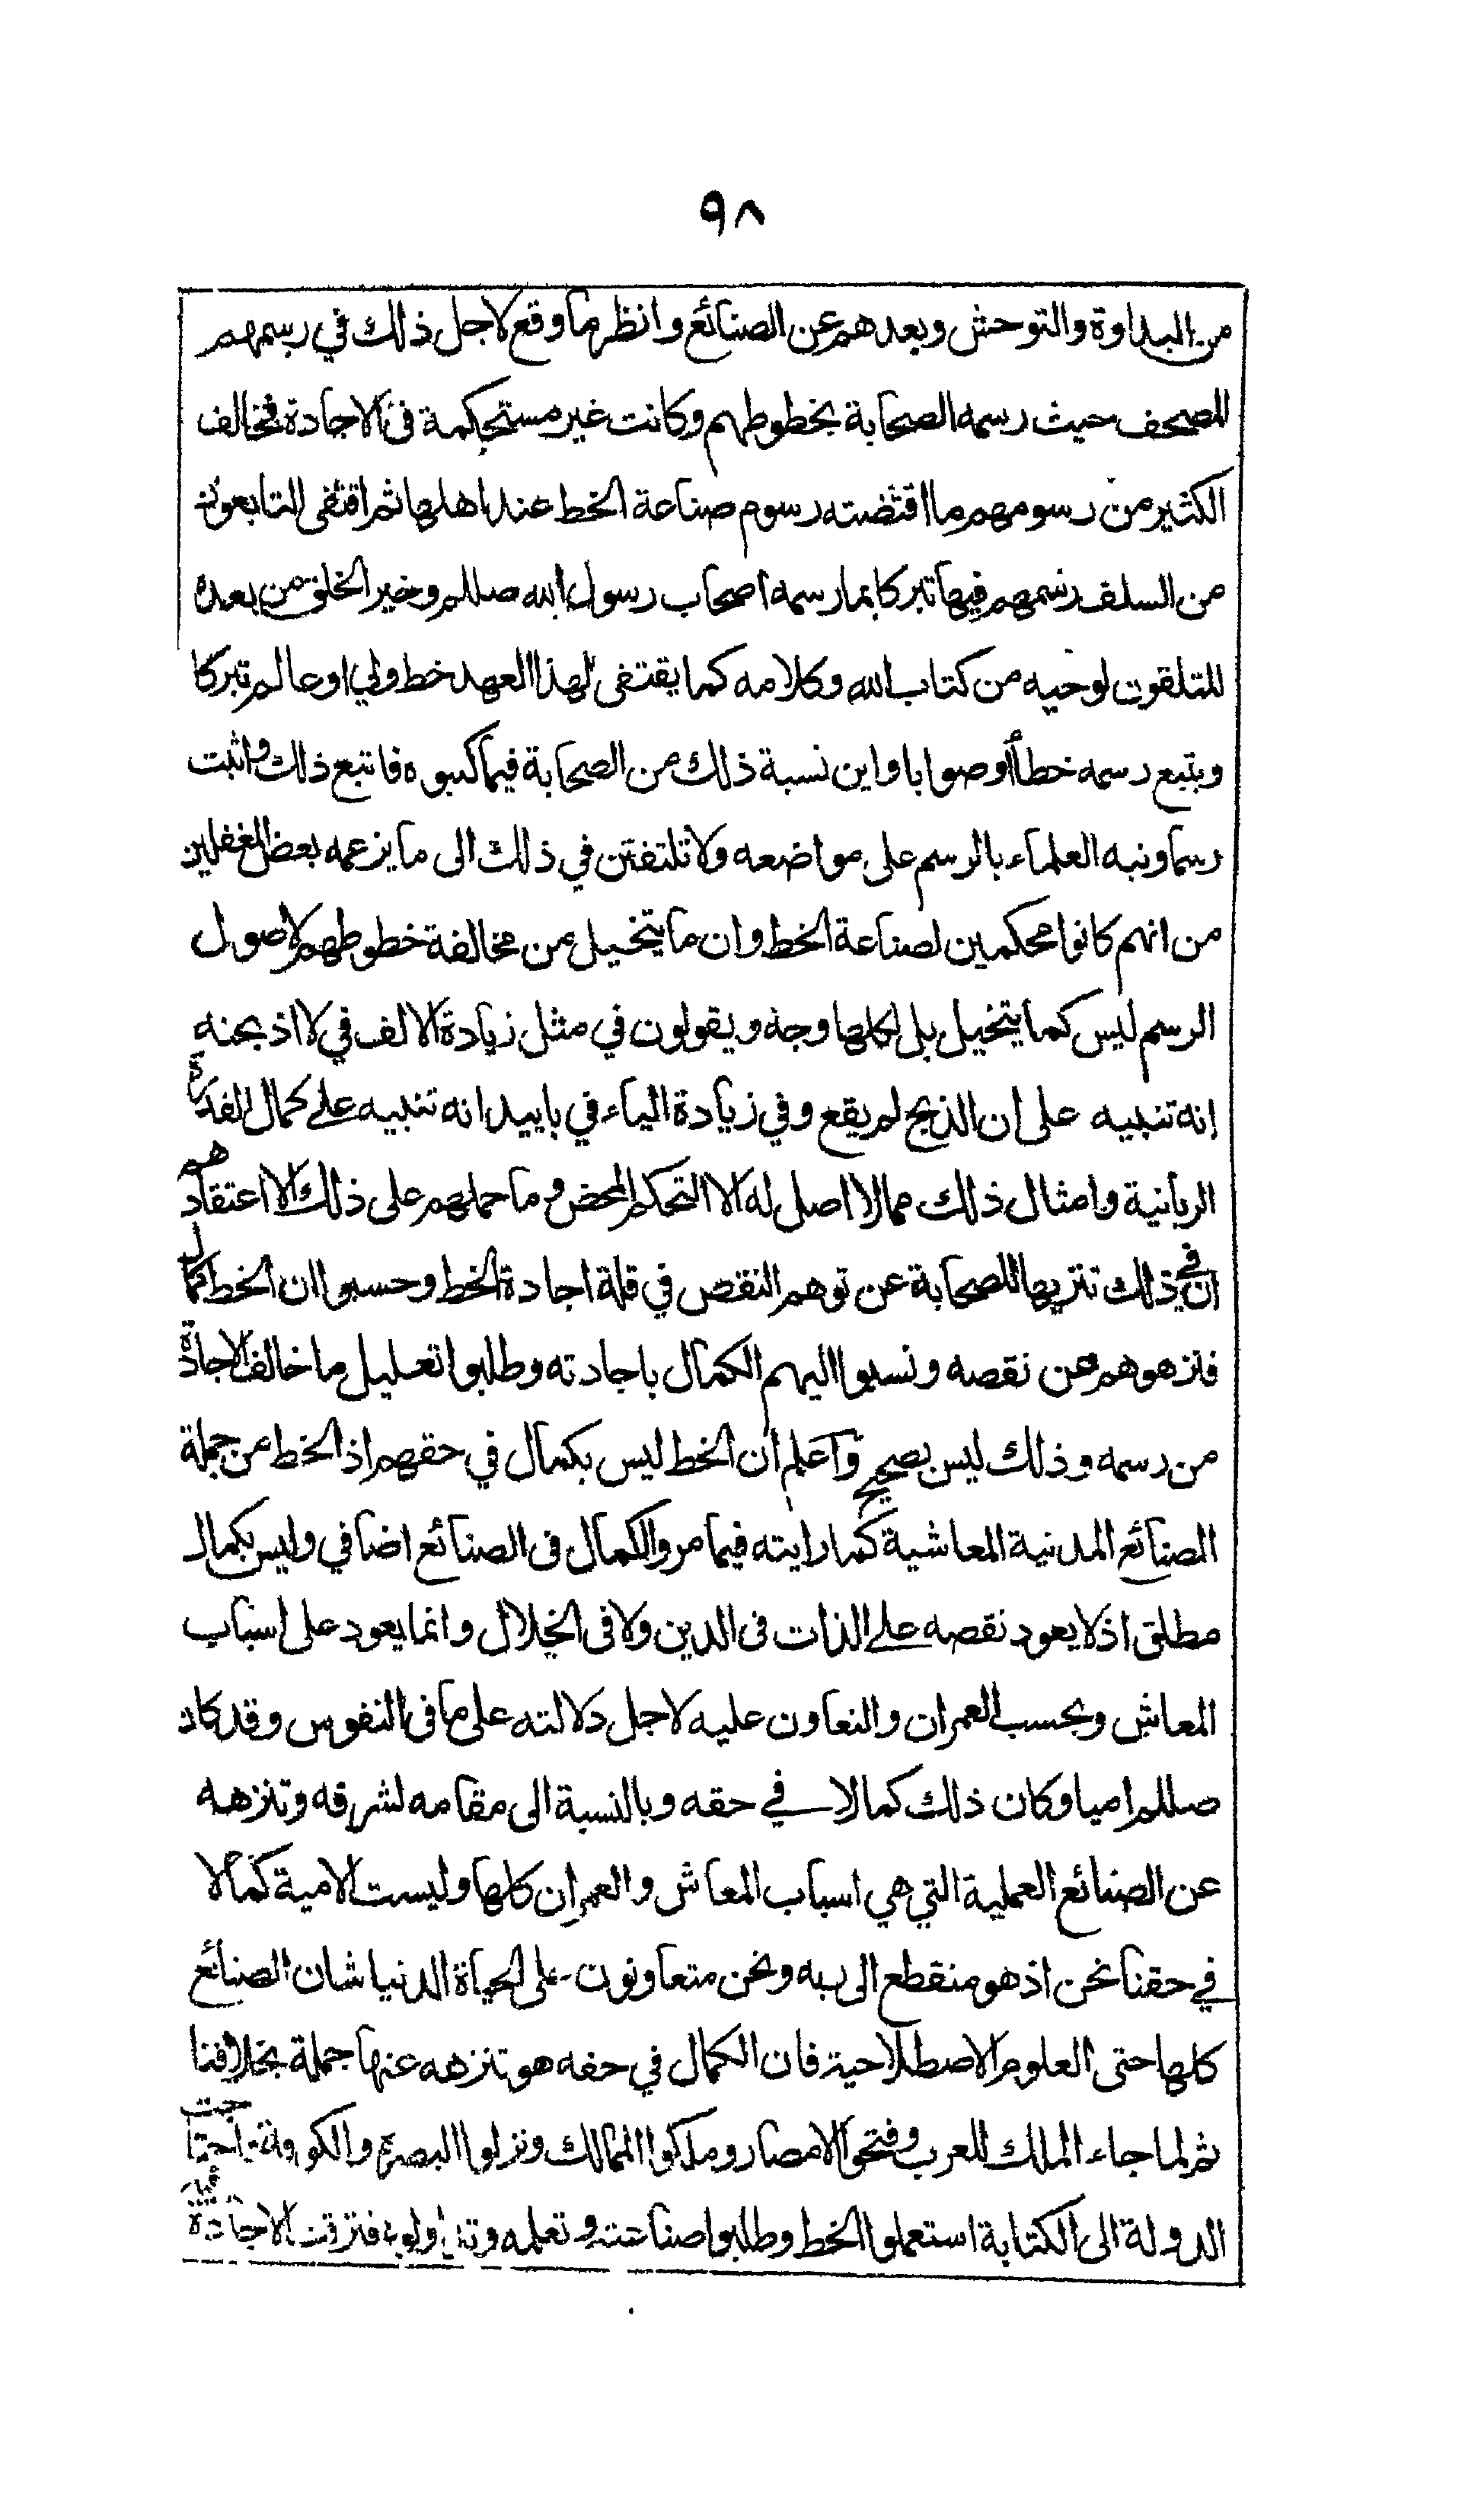 ٩٨
من البداوة والتوحش وبعدهم عن الصنائع وانظر ما وقع لاجل ذلك في رسمهم
المصحف حيث رسمه الصحابة بخطوطهم وكانت غير مستحكمة فى الاجادة فخالف
الكثير من رسومهم ما اقتضته رسوم صناعة الخط عند اهلها ثم اقتفى التابعون
من السلف رسمهم فيها تبركا بما رسمه اصحاب رسول الله صللم وخير الخلق من بعده
المتلقون لوحيه من كتاب الله وكلامه كما يقتفى لهذا العهد خط ولي او عالم تبركا
ويتبع رسمه خطأ أو صوابا واين نسبة ذلك من الصحابة فيما كتبوه فاتبع ذلك واثبت
رسما ونبه العلماء بالرسم على مواضعه ولا تلتفتن في ذلك الى ما يزعمه بعض المغفلين
من انهم كانوا محكمين لصناعة الخط وان ما يتخيل من مخالفة خطوطهم لاصول
الرسم ليس كما يتخيل بل لكلها وجه ويقولون في مثل زيادة الالف في لااذبحنه
انه تنبيه على ان الذبح لم يقع وفي زيادة الياء في باييد انه تنبيه على كمال القدرة
الربانية وامثال ذلك مما لا اصل له الا التحكم المحض وما حملهم على ذلك الا اعتقادهم
ان في ذلك تنزيها للصحابة عن توهم النقص في قلة اجادة الخط وحسبوا ان الخط كمال
فنزهوهم عن نقصه ونسبوا اليهم الكمال باجادته وطلبوا تعليل ما خالف الاجادة
من رسمه وذلك ليس بصحيح واعلم ان الخط ليس بكمال في حقهم اذ الخط من جملة
الصنائع المدنية المعاشية كما رايته فيما مر والكمال فى الصنائع اضافي وليس بكمال
مطلق اذ لا يعود نقصه على الذات فى الدين ولا فى الخلال وانما يعود على اسباب
المعاش وبحسب العمران والتعاون عليه لاجل دلالته على ما فى النفوس وقد كان
صللم اميا وكان ذلك كمالا في حقه وبالنسبة الى مقامه لشرفه وتنزهه
عن الصنائع العملية التي هي اسباب المعاش والعمران كلها وليست الامية كمالا
في حقنا نحن اذ هو منقطع الى ربه ونحن متعاونون على الحياة الدنيا شان الصنائع
كلها حتى العلوم الاصطلاحية فان الكمال في حقه هو تنزهه عنها جملة بخلافنا
ثم لما جاء الملك للعرب وفتحوا الامصار وملكوا الممالك ونزلوا البصرة والكوفة واحتاجت
الدولة الى الكتابة استعملوا الخط وطلبوا صناعته وتعلمه وتداولوه فترقت الاجادة فيه